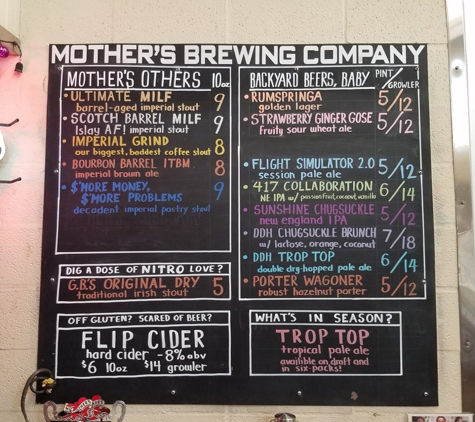 MOTHER'S BREWING COMPANY
MOTHER'S OTHERS 10oz
ULTIMATE MILF 9
barrel-aged imperial stout
SCOTCH BARREL MILF 9
Islay AF! imperial stout
IMPERIAL GRIND 8
our biggest, baddest coffee stout
BOURBON BARREL ITBM 8
imperial brown ale
$'MORE MONEY,
$'MORE PROBLEMS 9
decadent imperial pastry stout
DIG A DOSE OF NITRO LOVE?
G.B'S ORIGINAL DRY 5
traditional irish stout
OFF GLUTEN? SCARED OF BEER?
FLIP CIDER
hard cider - 8% abv
$6 10oz $14 growler
BACKYARD BEERS, BABY PINT/GROWLER
RUMSPRINGA 5/12
golden lager
STRAWBERRY GINGER GOSE 5/12
fruity sour wheat ale
FLIGHT SIMULATOR 2.0 5/12
session pale ale
417 COLLABORATION 6/14
NE IPA w/ passionfruit, coconut, vanilla
SUNSHINE CHUGSUCKLE 5/12
new england IPA
DDH CHUGSUCKLE BRUNCH 7/18
w/ lactose, orange, coconut
DDH TROP TOP 6/14
double dry-hopped pale ale
PORTER WAGONER 5/12
robust hazelnut porter
WHAT'S IN SEASON?
TROP TOP
tropical pale ale
available on draft and
in six-packs!